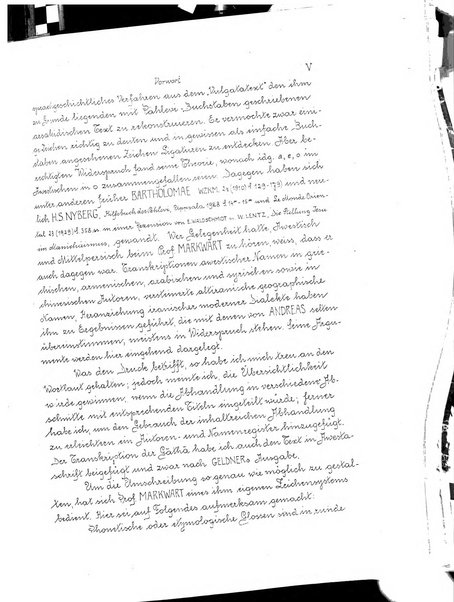 Vorwort
V
sprachgeschichtliches Verfahren aus dem „Vulgatatext" den ihm
zu grunde liegenden mit Pahlevi-Buchstaben geschriebenen
arsakidischen Text zu rekonstruieren. Es vermochte zwar eini-
ge Zeichen richtig zu deuten und in gewissen als einfache Buch-
staben angesehenen Zeichen Ligaturen zu entdecken. Aber be-
rechtigten Widerspruch fand seine Theorie, wonach idg. a, e, o im
Awestischen in o zusammengefallen seien. Dagegen haben sich
unter anderen früher BARTHOLOMAE WZKM. 24 (1910) S 129-173) und neu-
lich H.S. NYBERG, Hilfsbuch des Pehlevi, Uppsala, 1928 und Le Monde Orien-
tal 23 (1929) S 358 in einer Rezension von E. WALDSCHMIDT u. W. LENTZ, Die Stellung Jesu
im Manichäismus, gewandt. Wer Gelegenheit hatte Awestisch
und Mittelpersisch beim Prof. MARKWART zu hören, weiss, dass er
auch dagegen war. Transkriptionen awestischer Namen in grie-
chischen, armenischen, arabischen und syrischen sowie in
chinesischen Autoren, versteinerte altiranische geographische
Namen, Heranziehung iranischer moderner Dialekte haben
ihn zu Ergebnissen geführt, die mit denen von ANDREAS selten
übereinstimmen, meistens in Widerspruch stehen. Seine Argu-
mente werden hier eingehend dargelegt.
Was den Druck betrifft, so habe ich mich treu an den
Wortlaut gehalten; jedoch meinte ich, die Übersichtlichkeit
würde gewinnen, wenn die Abhandlung in verschiedene Ab-
schnitte mit entsprechenden Titeln eingeteilt würde; ferner
habe ich, um den Gebrauch der inhaltreichen Abhandlung
zu erleichtern ein Autoren- und Namenregister hinzugefügt.
Der Transkription der Gāthā habe ich auch den Text in Awesta-
schrift beigefügt und zwar nach GELDNERs Ausgabe.
Um die Umschreibung so genau wie möglich zu gestal-
ten, hat sich Prof. MARKWART eines ihm eigenen Zeichensystems
bedient. Hier sei auf Folgendes aufmerksam gemacht:
Phonetische oder etymologische Glossen sind in runde